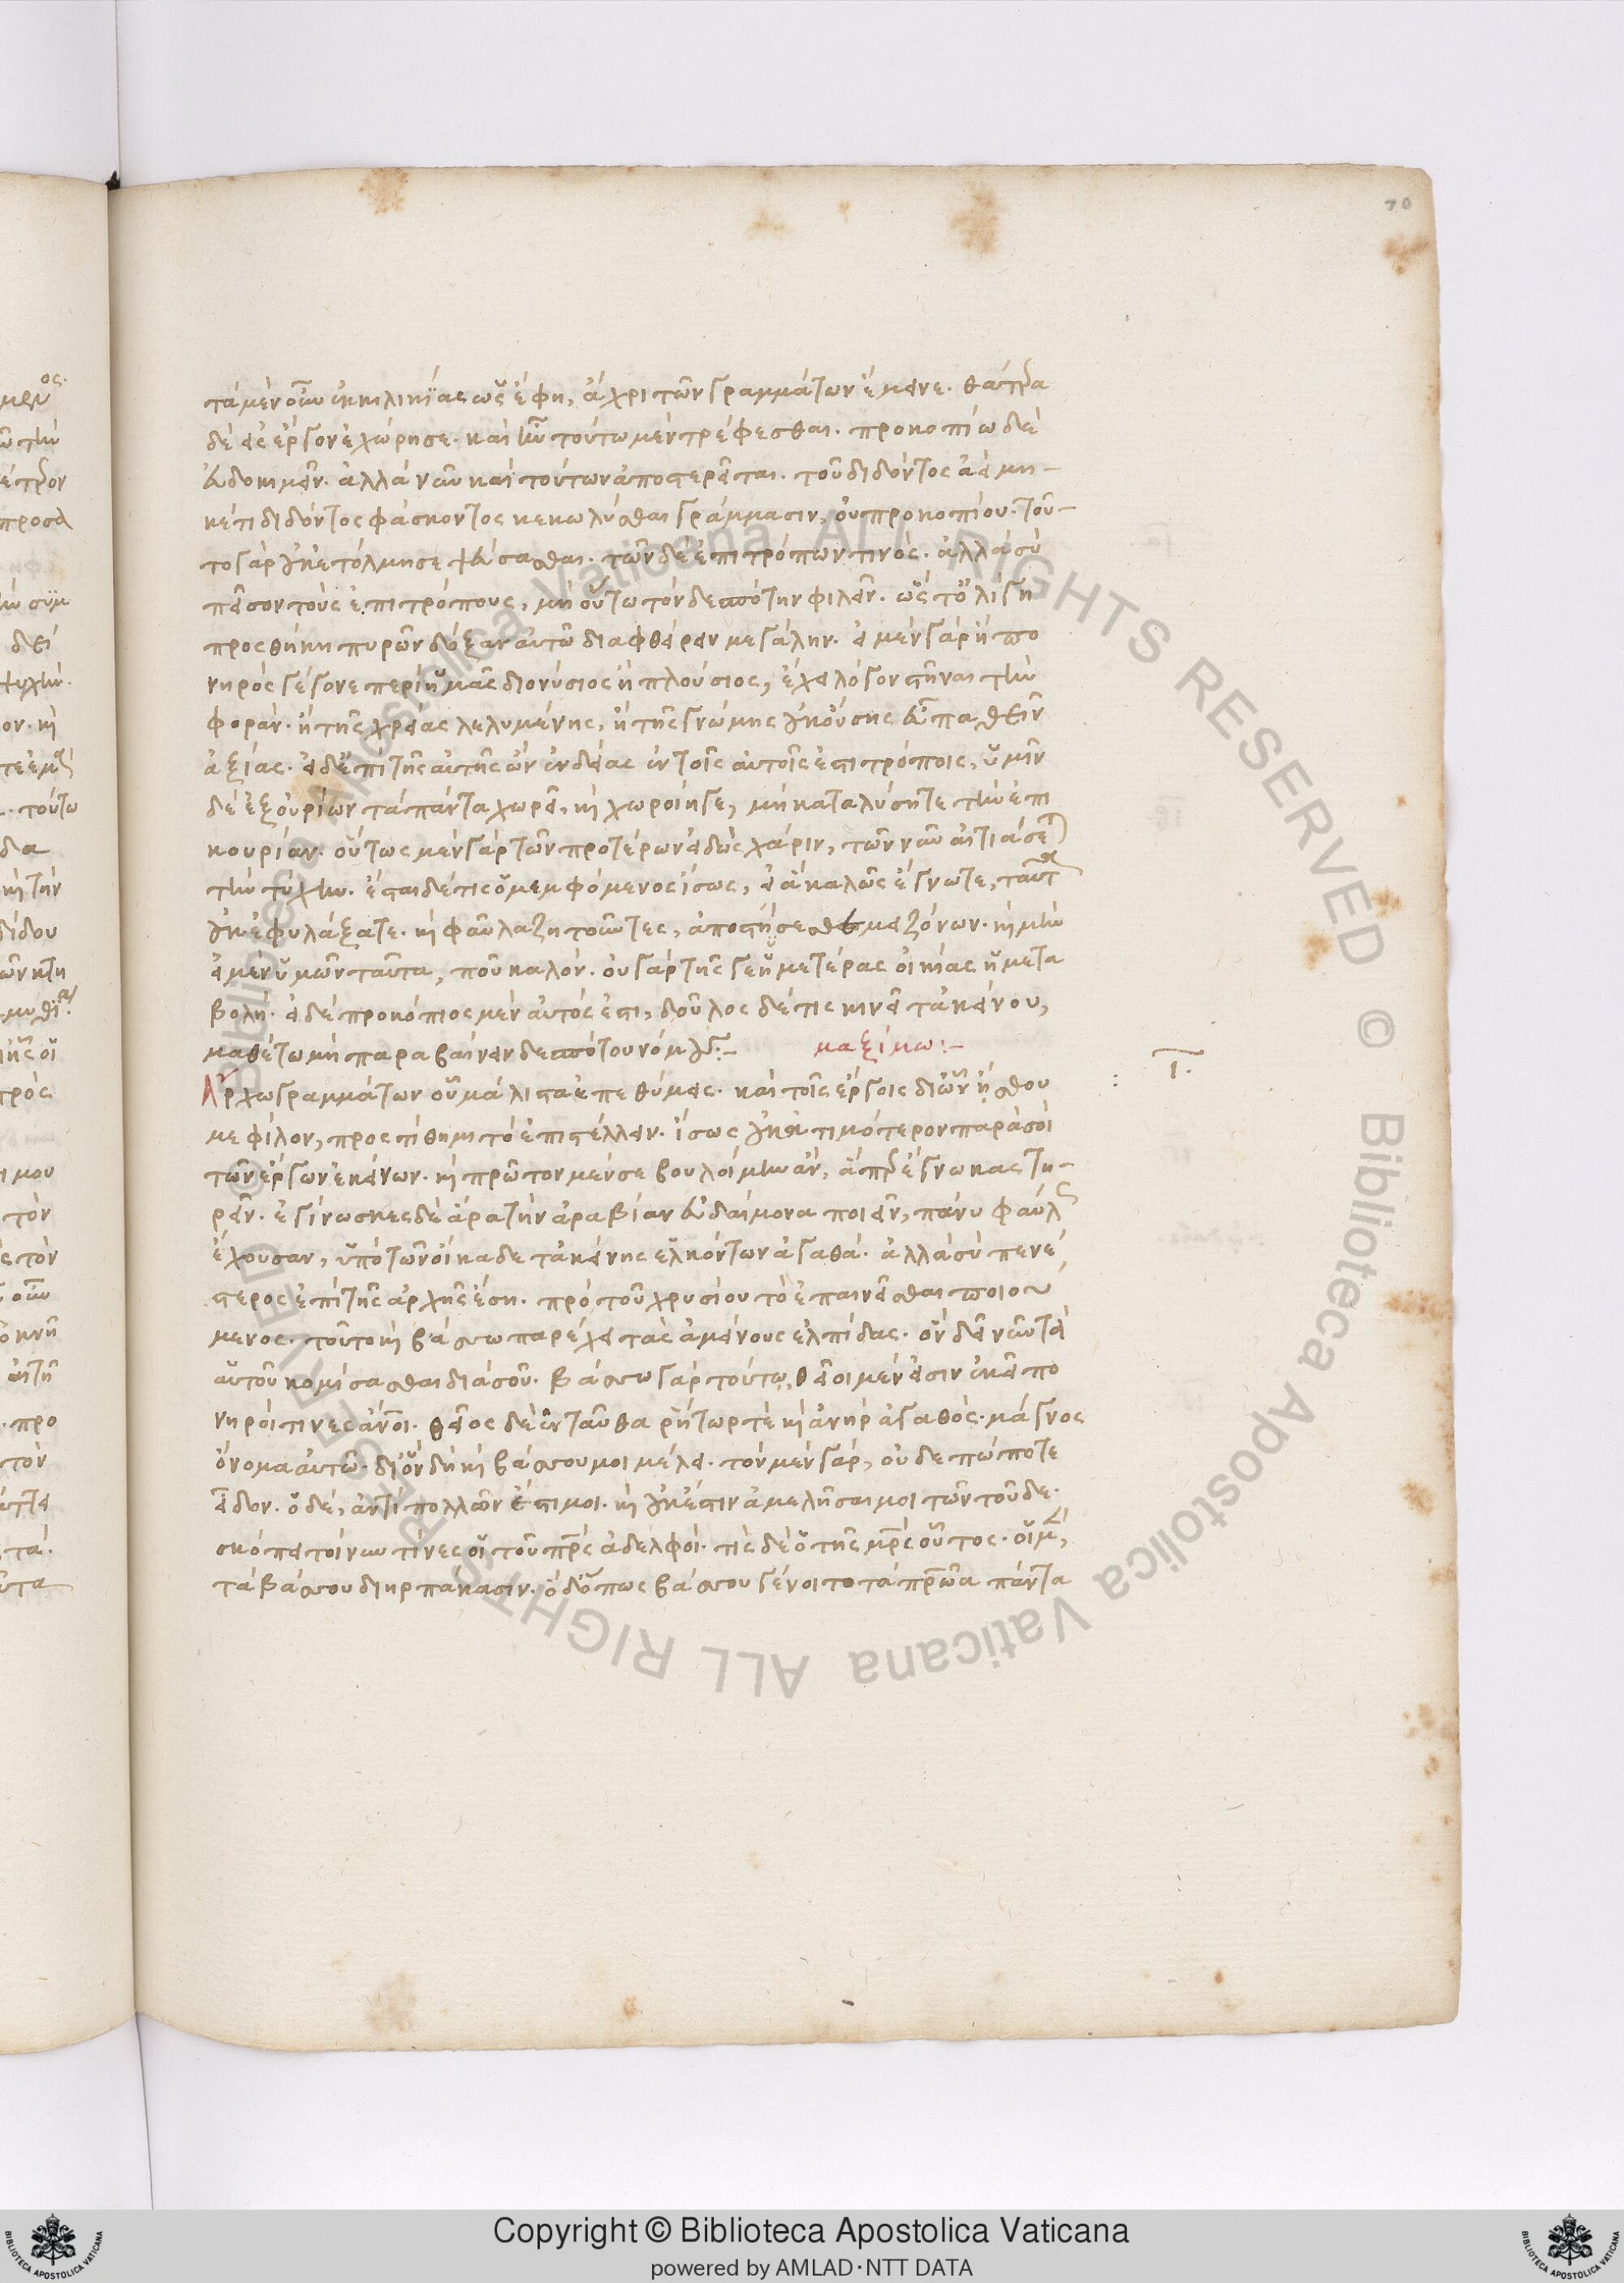 70
τὰ μὲν οὖν ἐκ κιλικίας ὡς ἔφη, ἄχρι τῶν γραμμάτων ἔμεινε. θάτερα
δὲ εἰς ἔργον ἐχώρησε. καὶ ἦν τούτω μὲν τρέφεσθαι. προκοπίω δὲ
εὐδοκιμεῖν. ἀλλὰ νῦν καὶ τούτων ἀποστερεῖται. τοῦ διδόντος ἀεὶ μη-
κέτι διδόντος φάσκοντος κεκωλύσθαι γράμμασιν, οὐ προκοπίου. τοῦ-
το γὰρ οὐκ ἐτόλμησε ψεύσασθαι. τῶν δὲ ἐπιτρόπων τινός. ἀλλὰ σὺ
πεῖσον τοὺς ἐπιτρόπους, μὴ οὕτω τὸν δεσπότην φιλεῖν. ὥστ' ὀλίγη
προσθήκη πυρῶν δόξαν αὐτῶ διαφθείρειν μεγάλην. εἰ μὲν γὰρ ἢ πο
νηρὸς γέγονε περὶ ἡμᾶς διονύσιος ἢ πλούσιος, ἔχει λόγον στῆναι τὴν
φοράν. ἢ τῆς χρείας λελυμένης, ἢ τῆς γνώμης οὐκ οὔσης εὖ παθεῖν
ἀξίας. εἰ δ' ἐπὶ τῆς αὐτῆς ὢν ἐνδείας ἐν τοῖς αὐτοῖς ἐστι τρόποις, ὑμῖν
δὲ ἐξ οὐρίων τὰ πάντα χωρεῖ, καὶ χωροίη γε, μὴ καταλύσητε τὴν ἐπι
κουρίαν. οὕτως μὲν γὰρ τῶν προτέρων εἰδὼς χάριν, τῶν νῦν αἰτιάσεται
τὴν τύχην. ἔσται δέ τις ὁ μεμφόμενος ἴσως, εἰ ἃ καλῶς ἔγνωτε, ταῦτα
οὐκ ἐφυλάξατε. καὶ φαῦλα ζητοῦντες, ἀποστήσεσθε μειζόνων. καὶ μὴν
εἰ μὲν ὑμῶν ταῦτα, ποῦ καλόν. οὐ γὰρ τῆς γε ἡμετέρας οἰκίας ἡ μετα
βολή. εἰ δὲ προκόπιος μὲν αὐτός ἐστι, δοῦλος δέ τις κινεῖ τὰ κείνου,
μαθέτω μὴ παραβαίνειν δεσπότου νόμους:-     μαξίμω:-
: ι.
Ἄρχω γραμμάτων οὗ μάλιστα ἐπεθύμεις. καὶ τοῖς ἔργοις δι' ὧν ἤσθου
με φίλον, προστίθημι τὸ ἐπιστέλλειν. ἴσως οὐκ ἀτιμότερον παρὰ σοὶ
τῶν ἔργων ἐκείνων. καὶ πρῶτον μέν σε βουλοίμην ἄν, ἅπερ ἔγνωκας τη-
ρεῖν. ἐγίνωσκες δὲ ἄρα τὴν ἀραβίαν εὐδαίμονα ποιεῖν, πάνυ φαύλως
ἔχουσαν, ὑπὸ τῶν οἴκαδε τἀκείνης ἑλκόντων ἀγαθά. ἀλλὰ σὺ πενέ,
στερος ἐπὶ τῆς ἀρχῆς ἔσῃ. πρὸ τοῦ χρυσίου τὸ ἐπαινεῖσθαι ποιού
μενος. τοῦτο καὶ βάσσω παρέχει τὰς ἀμείνους ἐλπίδας. ὃν δεῖ νῦν τὰ
αὑτοῦ κομίσασθαι διὰ σοῦ. βάσσω γὰρ τούτω, θεῖοι μέν εἰσιν ἐκεῖ πο
νηροί τινες ἄνθρωποι. θεῖος δὲ ἐνταῦθα ῥήτωρ τὲ καὶ ἀνὴρ ἀγαθός. μάγνος
ὄνομα αὐτῶ. δι' ὃν δὴ καὶ βάσσου μοι μέλει. τὸν μὲν γὰρ, οὐδεπώποτε
εἶδον. ὁ δέ, ἀντὶ πολλῶν ἐστί μοι. καὶ οὐκ ἔστιν ἀμελῆσαι μοι τῶν τοῦδε.
σκόπει τοίνυν τίνες οἱ τοῦ πατρὸς ἀδελφοί. τίς δὲ ὁ τῆς μητρὸς οὗτος. οἱ μὲν,
τὰ βάσσου διηρπάκασιν. ὁ δ' ὅπως βάσσου γένοιτο τὰ πατρῶα πάντα
Copyright © Biblioteca Apostolica Vaticana
powered by AMLAD·NTT DATA